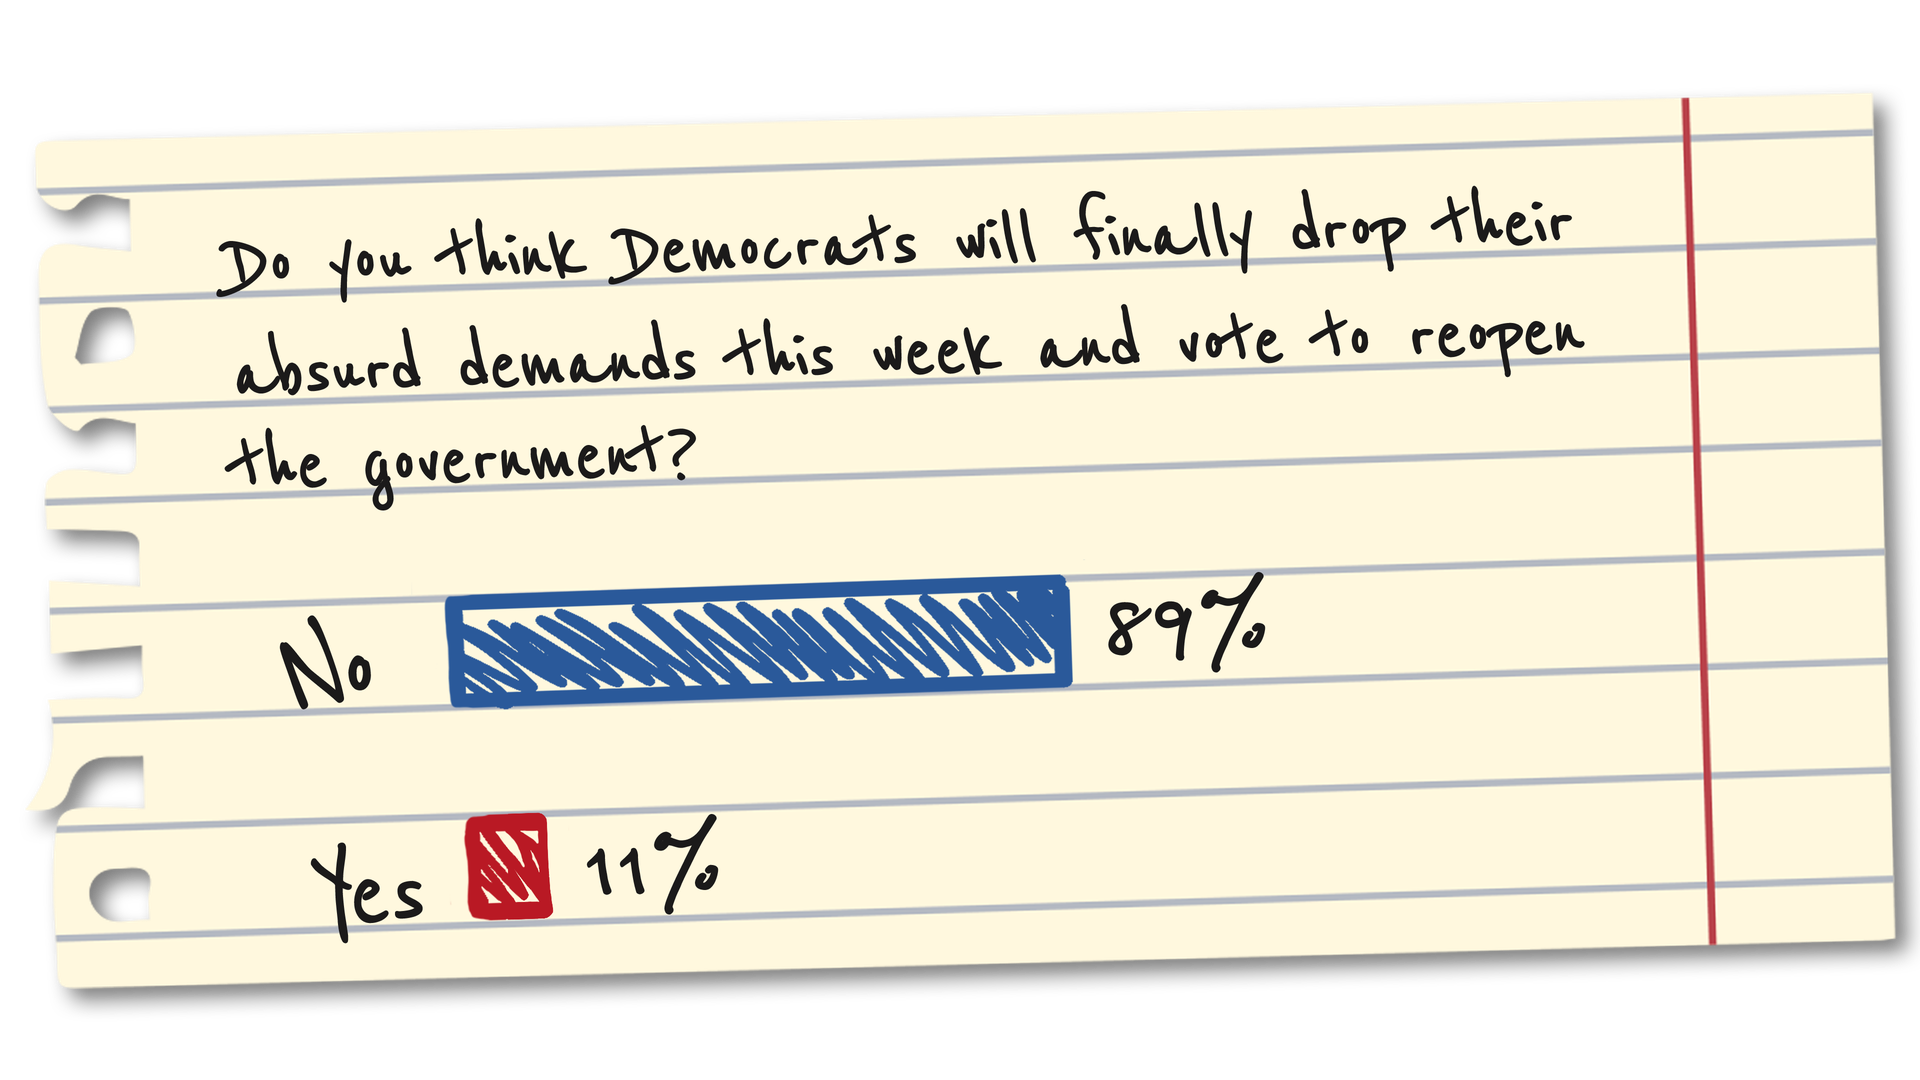 Do you think Democrats will finally drop their
absurd demands this week and vote to reopen
the government?
No 89%
Yes 11%